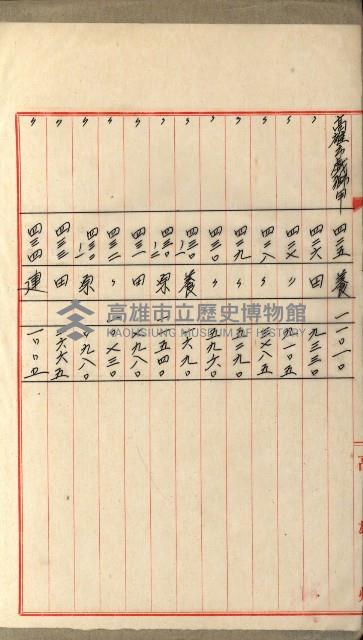 高雄市戲獅甲 四二五 養 一一〇一〇
〃 四二六 田 九三三〇
〃 四二七 〃 九一〇五
〃 四二八 〃 三七八五
〃 四二九 〃 九二九〇
〃 四三〇 〃 九九六〇
〃 養
〃 原 五四〇
〃 四三一 田 九八〇
〃 四三二 〃 七三〇
〃 原 九八〇
〃 四三三 田 六六五
〃 四三四 建 一〇〇五
高雄市立歷史博物館
KAOHSIUNG MUSEUM OF HISTORY